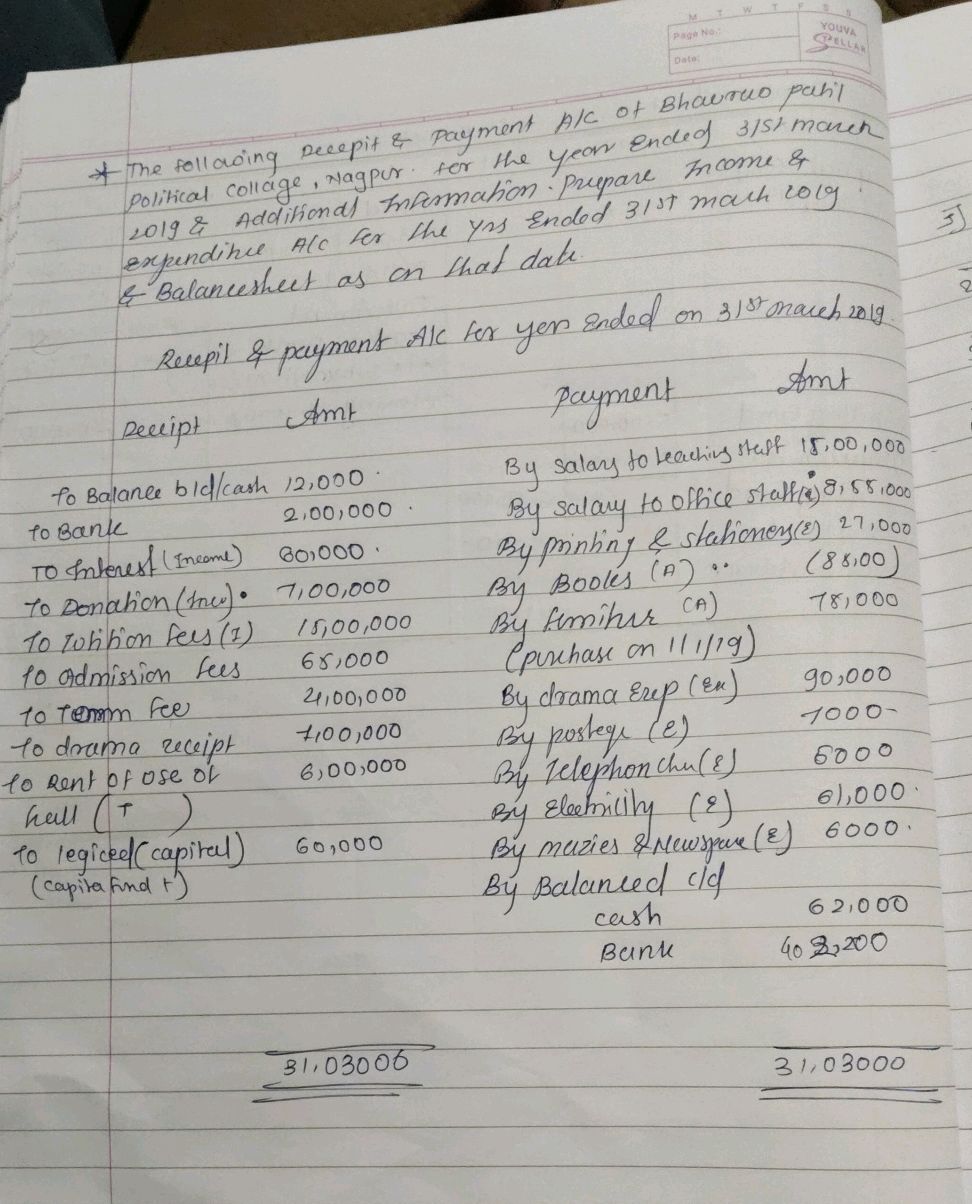 M T W T F S S
Page No.:
Date:
YOUVA
SPELLAR
* The following Recepit & Payment A/C of Bhaurao patil
political collage, Nagpur. for the year ended 31st march
2019 & Additional Information. Prepare Income &
expenditure A/C for the yrs Ended 31st march 2019
& Balancesheet as on that date.
Receipt & payment A/C for year Ended on 31st march 2019.
Receipt Amt Payment Amt
To Balance b/d/cash 12,000 By salary to teaching staff 15,00,000
To Bank 2,00,000 By salary to office staff(e) 8,55,000
TO Interest (Income) 60,000 By printing & stationery(E) 27,000
To Donation (Inco) 7,00,000 By Books (A) (88,00)
To tution fees (I) 15,00,000 By furnitur (A) 78,000
To admission fees 65,000 (purchase on 1/1/19)
To Term Fee 4,00,000 By drama Exp (Ex) 90,000
To drama receipt 1,00,000 By postege (E) 7000-
To Rent of use of 6,00,000 By Telephon (E) 6000
hall (I) By Electricity (E) 61,000
To (capital) 60,000 By & Newspare (E) 6000
(capital fund +) By Balanced c/d
cash 62,000
Bank 403,200
31,03000 31,03000